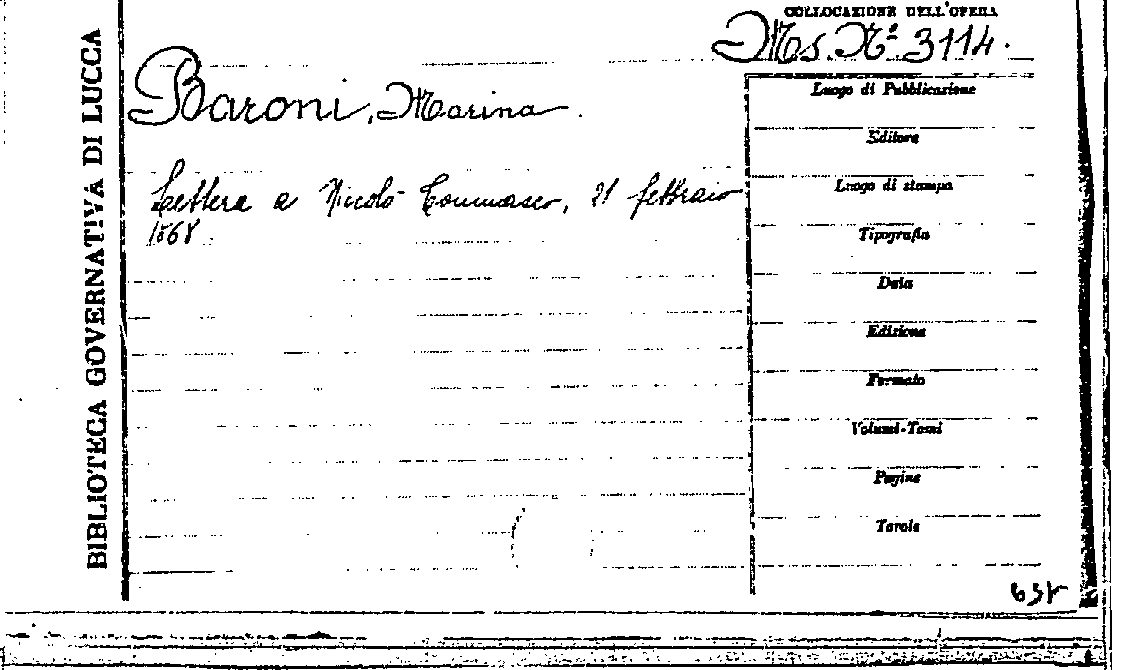 COLLOCAZIONE DELL'OPERA
Ms. Nº 3114.
BIBLIOTECA GOVERNATIVA DI LUCCA
Baroni, Marina.
Lettera a Nicolò Tommaseo, 21 febbraio
1868.
Luogo di Pubblicazione
Editore
Luogo di stampa
Tipografia
Data
Edizione
Formato
Volumi-Tomi
Pagine
Tavole